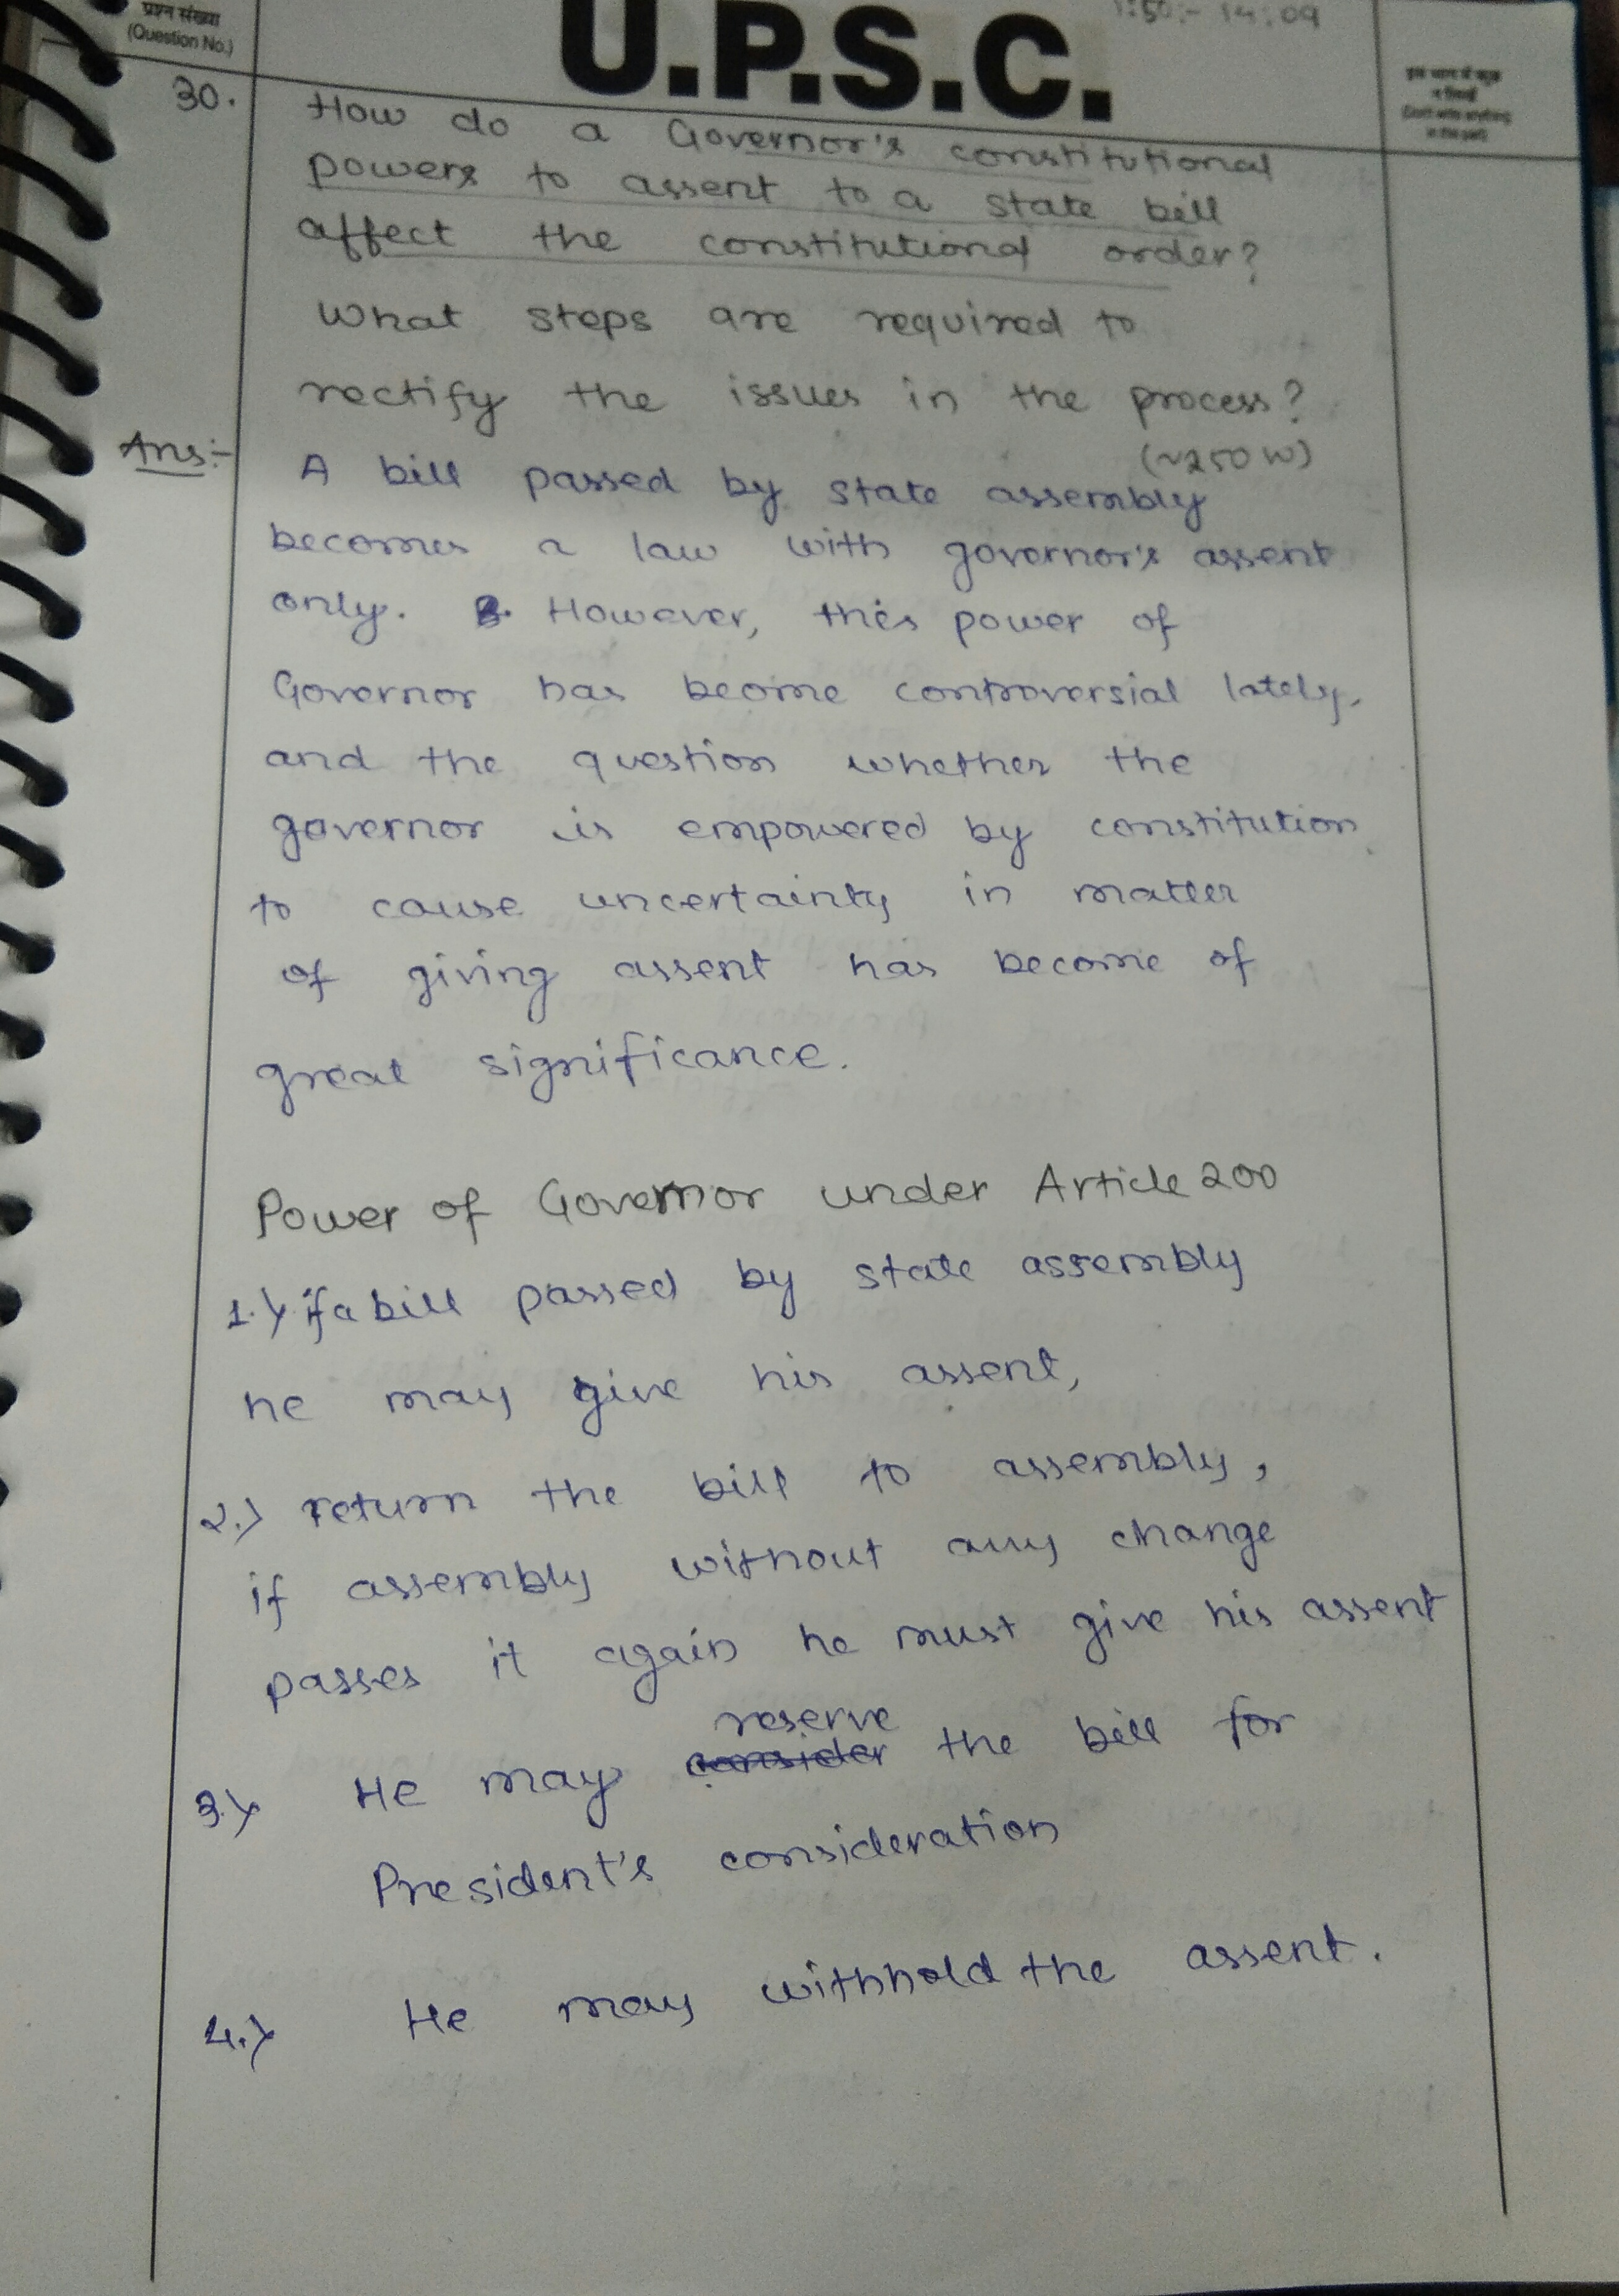 प्रश्न संख्या
(Question No.)
U.P.S.C.
1:50:- 14:09
30.
How do a Governor's constitutional
powers to assent to a state bill
affect the constitutional order?
What steps are required to
rectify the issues in the process?
(~250 W)
Ans:-
A bill passed by state assembly
becomes a law with governor's assent
only. However, this power of
Governor has beome controversial lately,
and the question whether the
governor is empowered by constitution
to cause uncertainty in matter
of giving assent has become of
great significance.
Power of Governor under Article 200
1.) if a bill passed by state assembly
he may give his assent,
2.) return the bill to assembly,
if assembly without any change
passes it again he must give his assent
reserve
3.) He may consider the bill for
President's consideration
4.) He may withhold the assent.